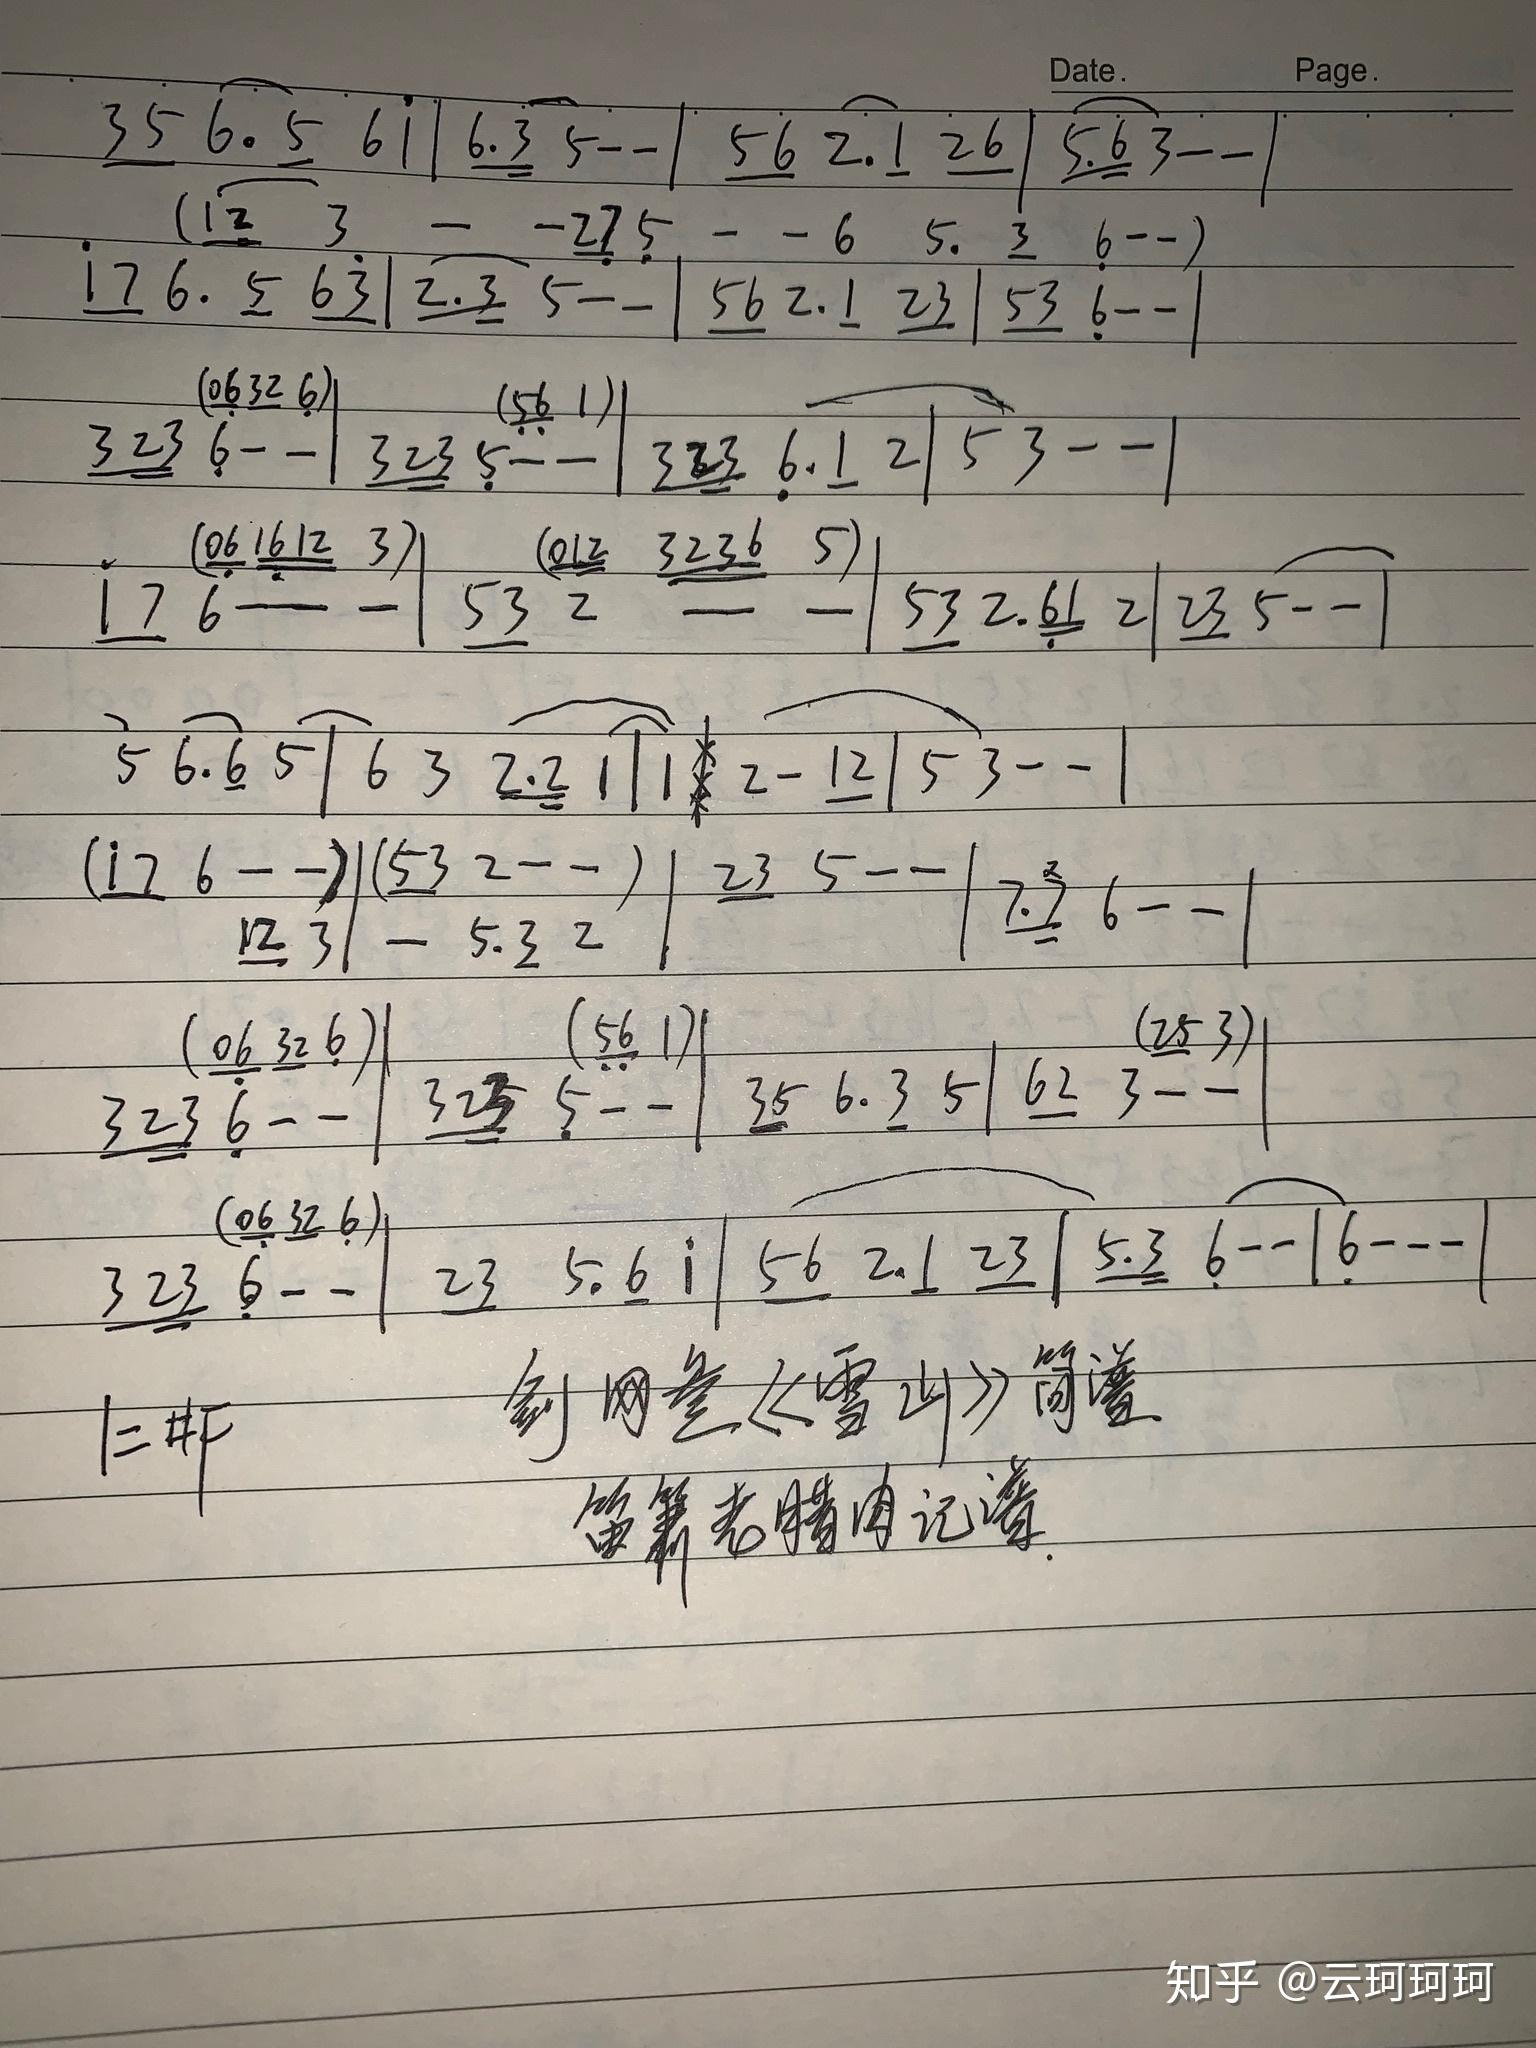 Date. Page.
35 6. 5 6i | 6.3 5-- | 56 2.1 26 | 5.6 3-- |
(12 3 - -27 5 - - 6 5. 3 6--)
i7 6. 5 63 | 2.3 5-- | 56 2.1 23 | 53 6-- |
(0632 6) (56 1)
323 6-- | 323 5-- | 323 6.1 2 | 5 3-- |
(06 1612 3) (012 3236 5)
i7 6-- | 53 2 - - | 53 2.61 2 | 23 5-- |
5 6.6 5 | 6 3 2.2 1 | 1 2-12 | 5 3-- |
(i7 6--) | (53 2--) | 23 5-- | 7.7 6-- |
12 3 | - 5.3 2 |
(06 32 6) (56 1) (25 3)
323 6-- | 323 5-- | 35 6.3 5 | 62 3-- |
(06 32 6)
323 6-- | 23 5.6 i | 56 2.1 23 | 5.3 6-- | 6--- |
1=#F 剑网叁《雪山》简谱
笛箫老腊肉记谱.
知乎 @云珂珂珂